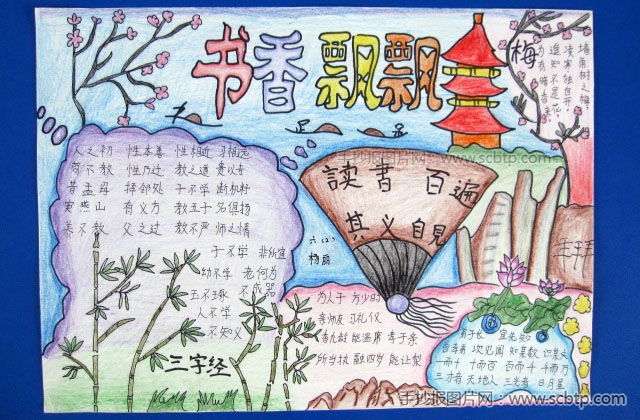 书香飘飘
梅
墙角树之梅
凌寒独自开
遥知不是花
为有暗香来
手抄报图片网:www.scbtp.com
人之初 性本善 性相近 习相远
苟不教 性乃迁 教之道 贵以专
昔孟母 择邻处 子不学 断机杼
窦燕山 有义方 教五子 名俱扬
养不教 父之过 教不严 师之惰
子不学 非所宜
幼不学 老何为
玉不琢 不成器
人不学
不知义
三字经
讀書百遍
其义自見
六(2)
为人子 方少时
亲师友 习礼仪
香九龄 能温席 孝于亲
所当执 融四岁 能让梨
宜先知
首孝弟 次见闻 知某数 识某文
一而十 十而百 百而千 千而万
三才者 天地人 三光者 日月星
手抄报图片网:www.scbtp.com